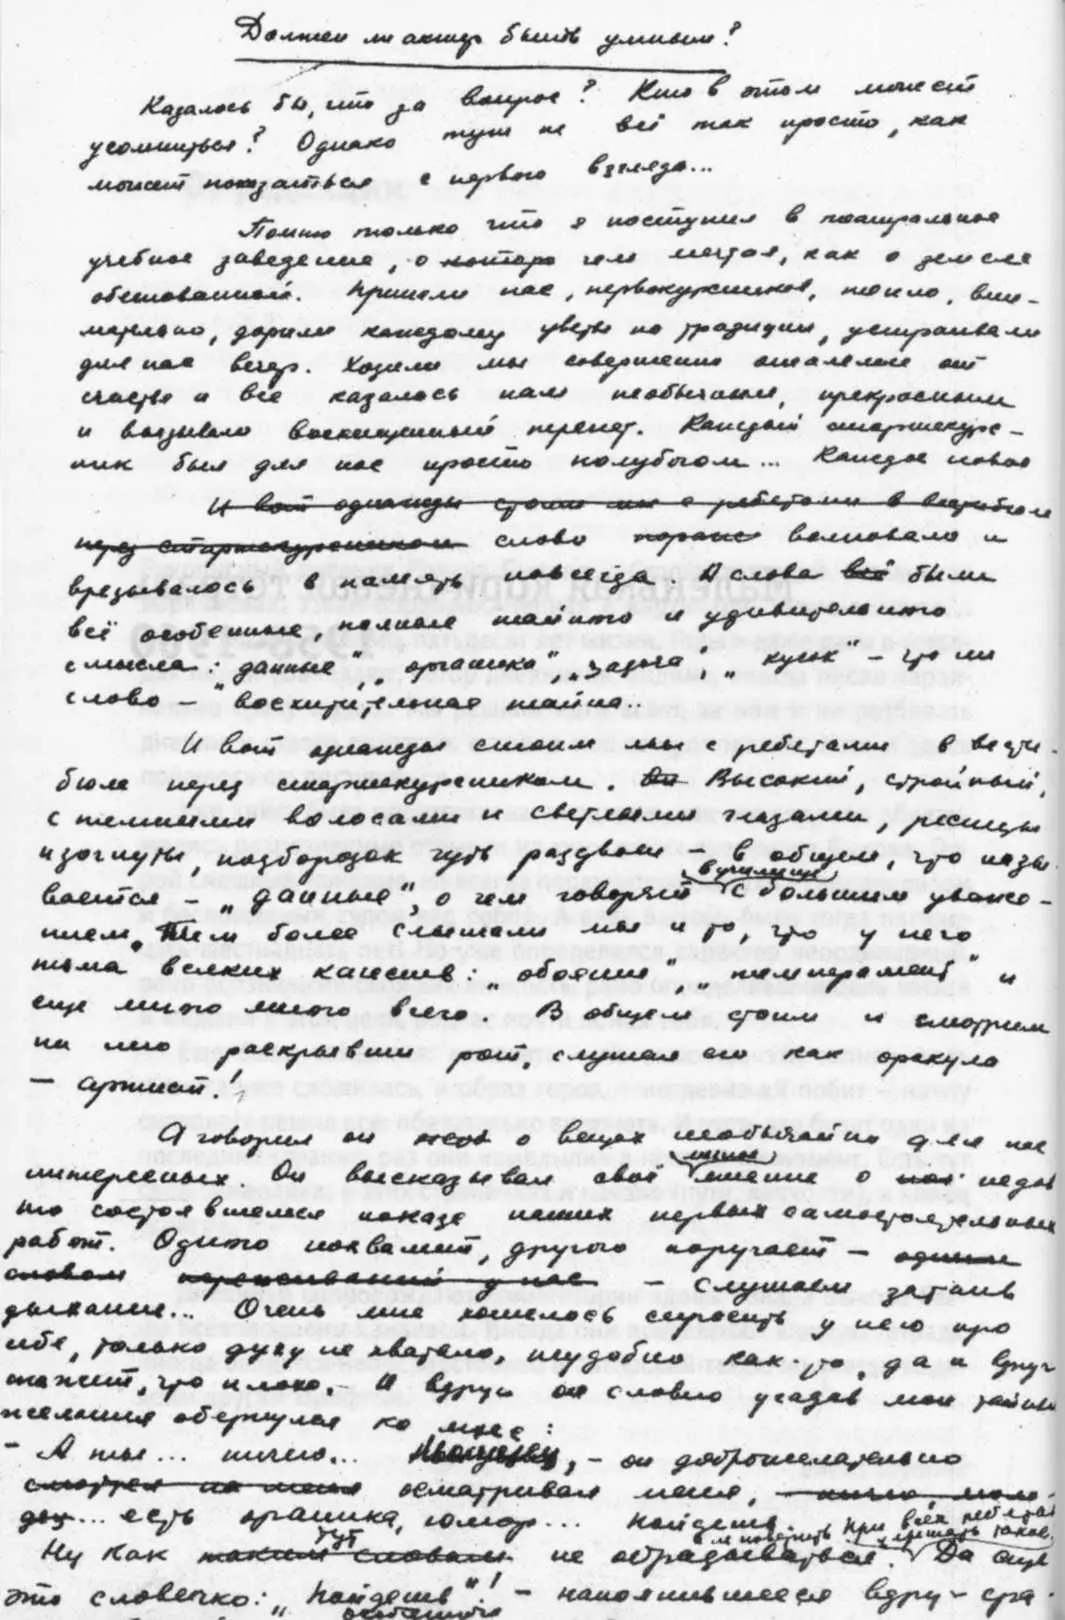 Должен ли актер быть умным?
Казалось бы, что за вопрос? Кто в этом может
усомниться? Однако тут не всё так просто, как
может показаться с первого взгляда...
Помню только что я поступил в театральное
учебное заведение, о котором чем мечтал, как о земле
обетованной. Приняли нас, первокурсников, тепло, вни-
мательно, дарили каждому цветы по традиции, устраивали
для нас вечер. Ходили мы совершенно ошалелые от
счастья и все казалось нам необычным, прекрасным
и вызывало восхищенный трепет. Каждый старшекурс-
ник был для нас просто полубогом... Каждое новое
И вот однажды стоим мы с ребятами в вестибюле
перед старшекурсником слово волновало и
врезывалось в память навсегда. А слова всё были
всё особенные, полные тайного и удивительного
смысла: „данные", „органика", „задача", „кусок" – что ни
слово – восхитительная тайна..
И вот однажды стоим мы с ребятами в вести-
бюле перед старшекурсником. Он Высокий, стройный,
с темными волосами и светлыми глазами, ресницы
изогнуты, подбородок чуть раздвоен – в общем, что назы-
в училище
вается – „данные", о чем говорят с большим уваже-
нием. Тем более слышали мы и то, что у него
тьма всяких качеств: „обояние", „темперамент" и
еще много много всего. В общем стоим и смотрим
на него раскрывши рот, слушая его как оракула
– артист!
А говорил он о вещах необычайно для нас
интересных. Он высказывал своё мнение о недав
но состоявшемся показе наших первых самостоятельных
работ. Одного похвалит, другого поругает – одним
словом переживаний у нас – слушаем затаив
дыхание... Очень мне хотелось спросить у него про
себя, только духу не хватало, неудобно как-то, да и вдруг
скажет, что плохо. – И вдруг он словно угадав мои тайные
желания обернулся ко мне:
– А ты... ничего... – он доброжелательно
смотрел на меня осматривал меня, – ничего, моло-
дец... есть органика, юмор... Пойдешь.
При всех ребятах
тут
Ну как таким словам не обрадоваться. Да еще
это словечко: „Пойдешь"! – наполнившееся вдруг
особенного